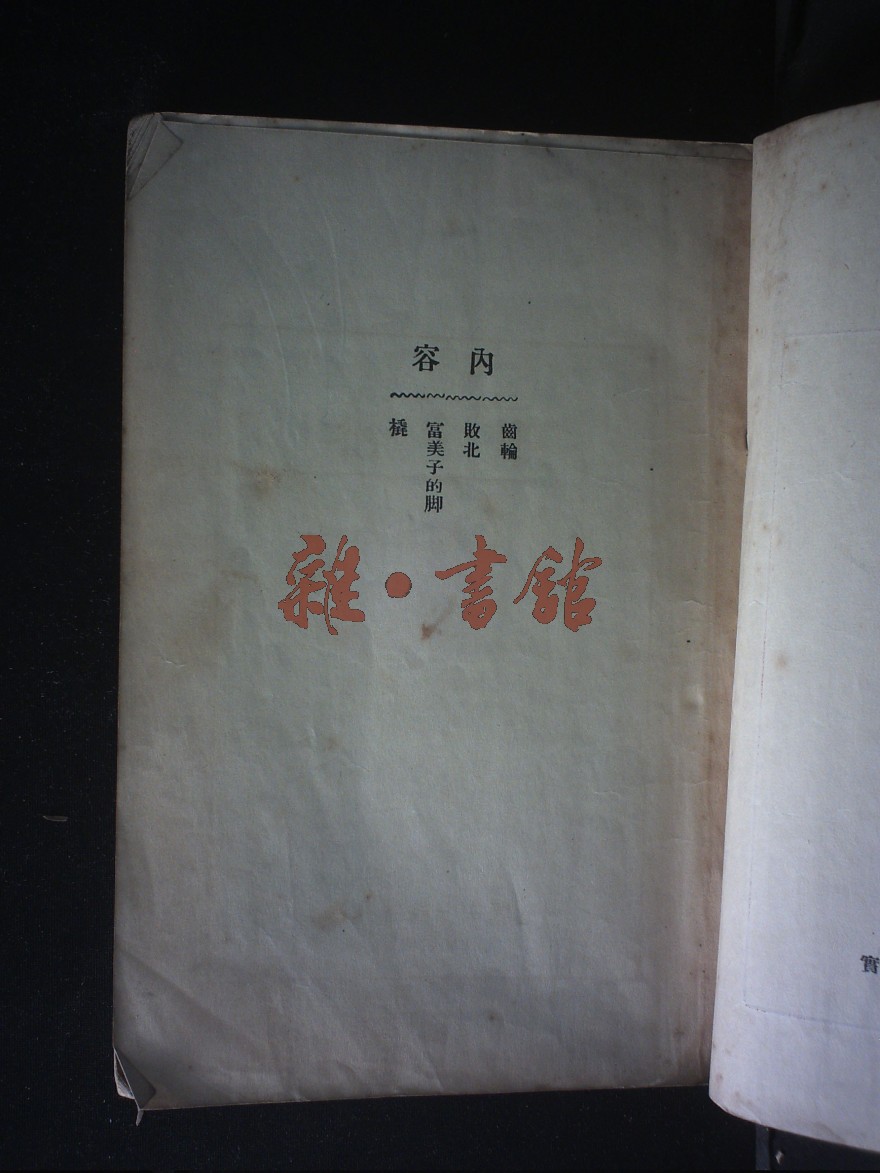 內容
齒輪
敗北
富美子的脚
橇
雜·書館
實